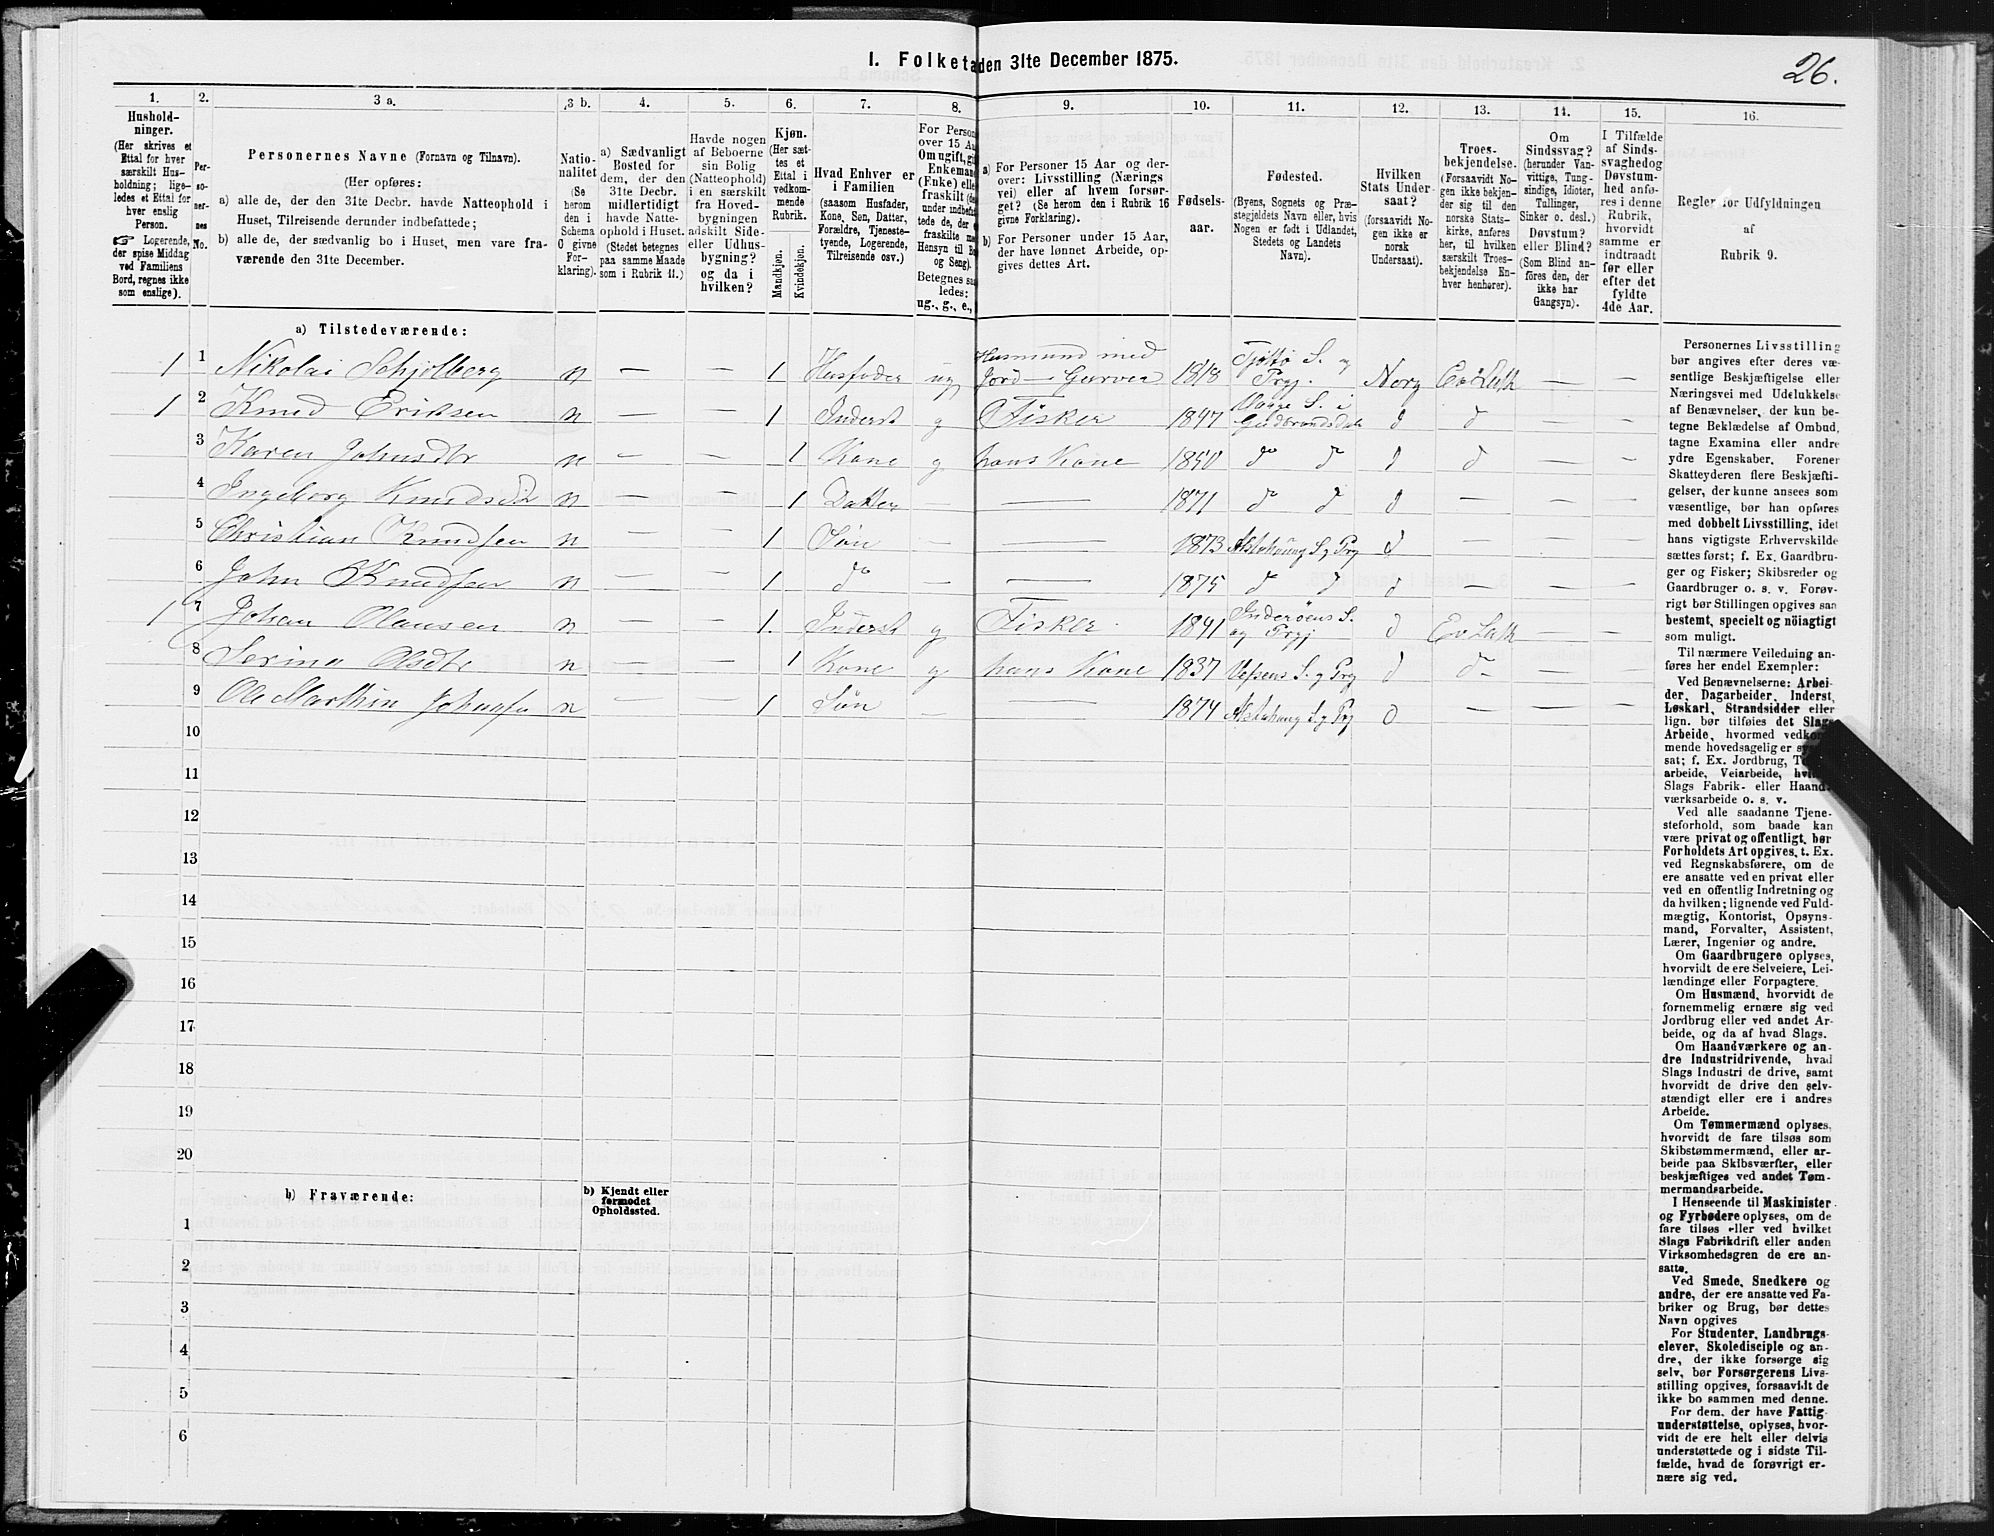 I. Folketa den 31te December 1875.
26.
1.
Hushold-
ninger.
(Her skrives et
Ettal for hver
særskilt Hus-
holdning; lige-
ledes et Ettal for
hver enslig
Person.
☞ Logerende,
der spise Middag
ved Familiens
Bord, regnes ikke
som enslige).
2.
Per-
so-
ner-
nes
No.
3 a.
Personernes Navne (Fornavn og Tilnavn).
(Her opføres:
a) alle de, der den 31te Decbr. havde Natteophold i
Huset, Tilreisende derunder indbefattede;
b) alle de, der sædvanlig bo i Huset, men vare fra-
værende den 31te December.
3 b.
Natio-
nalitet
(Se
herom
den i
Schema
O givne
For-
klaring).
4.
a) Sædvanligt
Bosted for
dem, der den
31te Decbr.
midlertidigt
havde Natte-
ophold i Huset.
(Stedet betegnes
paa samme Maade
som i Rubrik 11.)
5.
Havde nogen
af Beboerne
sin Bolig
(Natteophold)
i en særskilt
fra Hoved-
bygningen
adskilt Side-
eller Udhus-
bygning?
og da i
hvilken?
6.
Kjøn.
(Her sæt-
tes et
Ettal i
vedkom-
mende
Rubrik.
Mandkjøn.
Kvindekjøn.
7.
Hvad Enhver er
i Familien
(saasom Husfader,
Kone, Søn, Datter,
Forældre, Tjeneste-
tyende, Logerende,
Tilreisende osv.)
8.
For Person
over 15 Aa
Om ugift, gif
Enkeman
(Enke) elle
fraskilt (de
under indbefat
tede de, der e
fraskilte me
Hensyn til Bo
og Seng).
Betegnes saa
ledes:
ug., g., e.,
9.
a) For Personer 15 Aar og der-
over: Livsstilling (Nærings
vei) eller af hvem forsør-
get? (Se herom den i Rubrik 16
givne Forklaring).
b) For Personer under 15 Aar,
der have lønnet Arbeide, op-
gives dettes Art.
10.
Fødsels-
aar.
11.
Fødested.
(Byens, Sognets og Præ-
stegjeldets Navn eller, hvis
Nogen er født i Udlandet,
Stedets og Landets
Navn).
12.
Hvilken
Stats Under-
saat?
(forsaavidt No-
gen ikke er
norsk
Undersaat).
13.
Troes-
bekjendelse.
(Forsaavidt No-
gen ikke bekjen-
der sig til den
norske Stats-
kirke, anføres
her, til hvilken
særskilt Troes-
bekjendelse En-
hver henhører).
14.
Om
Sindssvag?
(herunder Van-
vittige, Tung-
sindige, Idioter,
Tullinger,
Sinker o. desl.)
Døvstum?
eller Blind?
(Som Blind an-
føres den, der
ikke har
Gangsyn).
15.
I Tilfælde
af Sinds-
svaghedog
Døvstum-
hed anfø-
res i denne
Rubrik,
hvorvidt
samme er
indtraadt
før eller
efter det
fyldte
4de Aar.
16.
Regler for Udfyldningen
af
Rubrik 9.
a) Tilstedeværende:
1 1 Nikolai Schjolberg n — — 1 Husfader ug Husmand med Jord — Garver 1818 Tjøttø S. og Prgj. Norg Ev Luth — —
1 2 Knud Eriksen n — — 1 Inderst g Fisker 1847 Vaage S. i Gudbrandsdale d d — —
3 Karen Johnsdtr n — — 1 Kone g hans Kone 1850 do d d d — —
4 Ingeborg Knudsdtr n — — 1 Datter — — 1871 do d d — — —
5 Christian Knudsen n — — 1 Søn — — 1873 Alstahaug S g Prgj d — — —
6 John Knudsen n — — 1 do — — 1875 d d d — — —
1 7 Johan Olausen n — — 1. Inderst g Fisker 1841 Inderøens S. og Prgj d Ev Luth — —
8 Serina Olsdtr n — — 1 Kone g hans Kone 1837 Vefsens S. g Prgj d d — —
9 Ole Marthin Johansen n — — 1 Søn — — 1874 Alstahaug S g Prgj d — — —
10
11
12
13
14
15
16
17
18
19
20
b) Fraværende:
b) Kjendt eller
formodet
Opholdssted.
1
2
3
4
5
6
Personernes Livsstilling
bør angives efter deres væ-
sentlige Beskjæftigelse eller
Næringsvei med Udelukkelse
af Benævnelser, der kun be-
tegne Beklædelse af Ombud,
tagne Examina eller andre
ydre Egenskaber. Forener
Skatteyderen flere Beskjæfti-
gelser, der kunne ansees som
væsentlige, bør han opføres
med dobbelt Livsstilling, idet
hans vigtigste Erhvervskilde
sættes først; f. Ex. Gaardbru-
ger og Fisker; Skibsreder og
Gaardbruger o. s. v. Forøv-
rigt bør Stillingen opgives saa
bestemt, specielt og nöiagtigt
som muligt.
Til nærmere Veiledning an-
føres her endel Exempler:
Ved Benævnelserne: Arbei-
der, Dagarbeider, Inderst,
Løskarl, Strandsidder eller
lign. bør tilføies det Slags
Arbeide, hvormed vedkom-
mende hovedsagelig er sys
sat; f. Ex. Jordbrug, T
arbeide, Veiarbeide, hvi
Slags Fabrik- eller Haand-
værksarbeide o. s. v.
Ved alle saadanne Tjene-
steforhold, som baade kan
være privat og offentligt, bør
Forholdets Art opgives, t. Ex.
ved Regnskabsførere, om de
ere ansatte ved en privat eller
ved en offentlig Indretning og
da hvilken; lignende ved Fuld-
mægtig, Kontorist, Opsyns-
mand, Forvalter, Assistent,
Lærer, Ingeniør og andre.
Om Gaardbrugere oplyses,
hvorvidt de ere Selveiere, Lei-
lændinge eller Forpagtere.
Om Husmænd, hvorvidt de
fornemmelig ernære sig ved
Jordbrug eller ved andet Ar-
beide, og da af hvad Slags.
Om Haandværkere og an-
dre Industridrivende, hvad
Slags Industri de drive, samt
hvorvidt de drive den selv-
stændigt eller ere i andres
Arbeide.
Om Tømmermænd oplyses,
hvorvidt de fare tilsøs som
Skibstømmermænd, eller ar-
beide paa Skibsværfter, eller
beskjæftiges ved andet Tøm-
mermandsarbeide.
I Henseende til Maskinister
og Fyrbødere oplyses, om de
fare tilsøs eller ved hvilket
Slags Fabrikdrift eller anden
Virksomhedsgren de ere an-
satte.
Ved Smede, Snedkere og
andre, der ere ansatte ved Fa-
briker og Brug, bør dettes
Navn opgives
For Studenter, Landbrugs-
elever, Skoledisciple og an-
dre, der ikke forsørge sig
selv, bør Forsørgerens Livs-
stilling opgives, forsaavidt de
ikke bo sammen med denne.
For dem, der have Fattig-
understøttelse, oplyses, hvor-
vidt de ere helt eller delvis
understøttede og i sidste Til-
fælde, hvad de forøvrigt er-
nære sig ved.